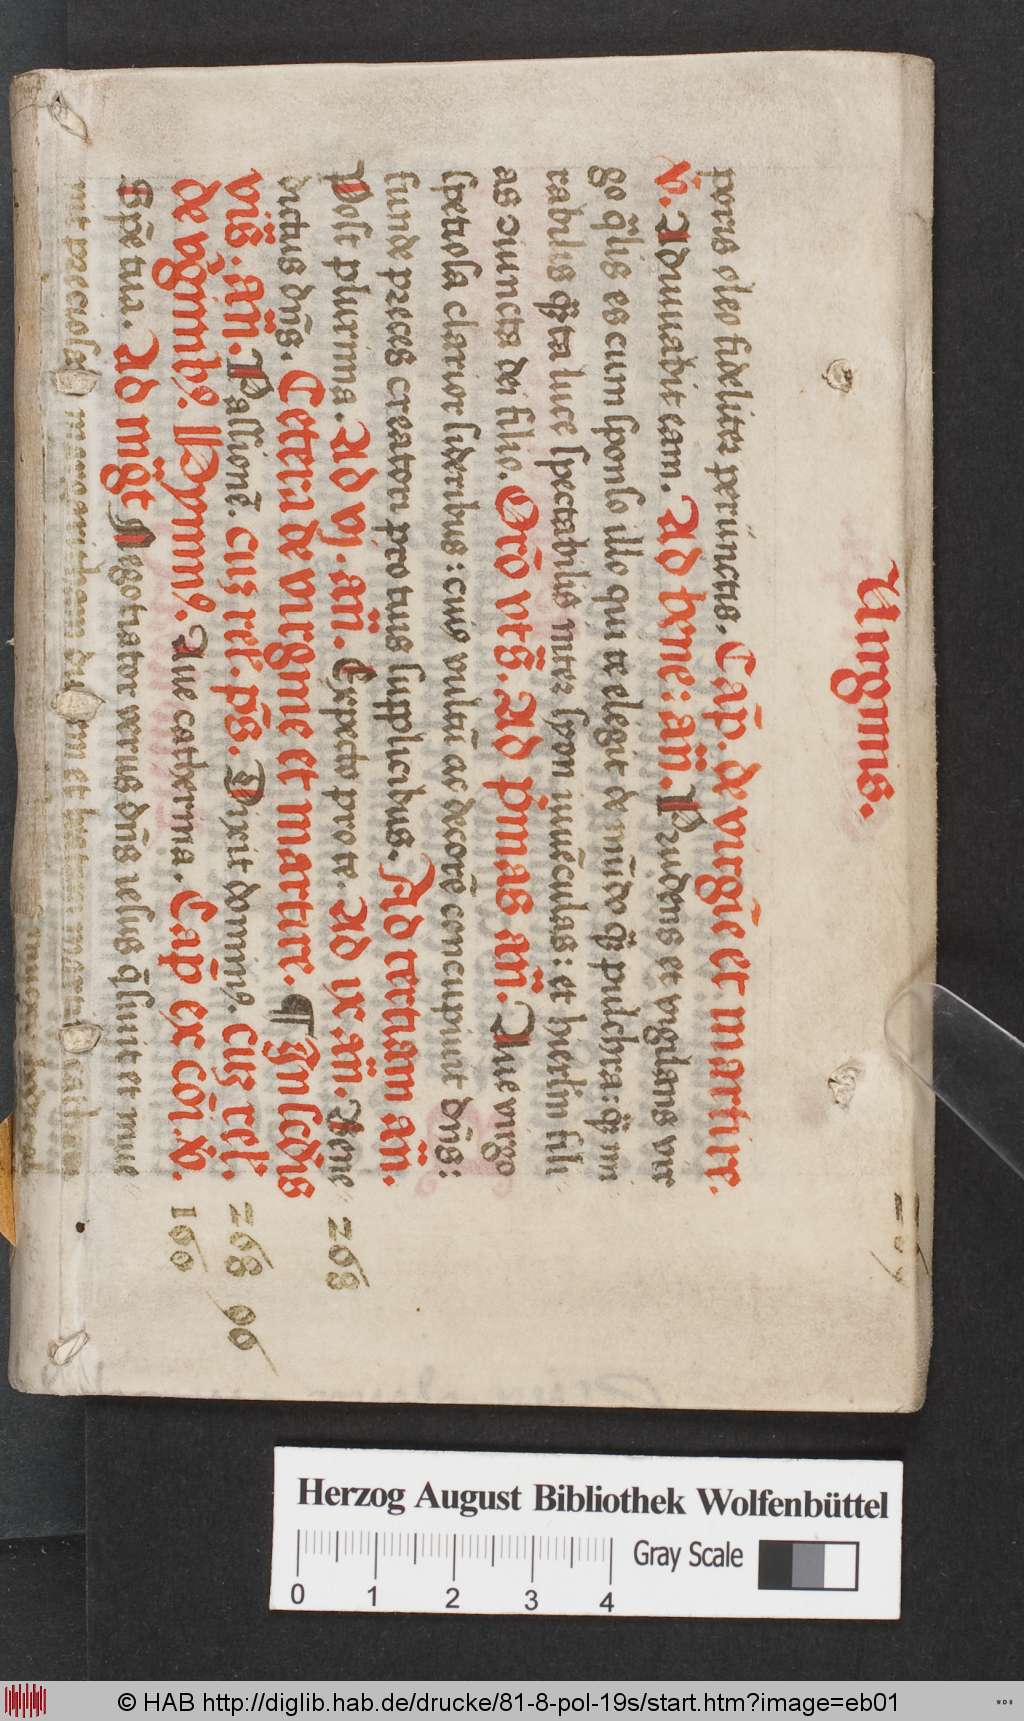 Uirginis.
poris oleo fideliter perunctis. Cap̄. de virgīe et martire.
℣. Adiuuabit eam. Ad bene: añ. Prudens et vigilans vir
go q̄lis es cum sponso illo qui te elegit de mūdo q̄ pulchra: q̄ mi
rabilis q̄ta luce spectabilis inter syon iuuēculas: et hierl̄m fili
as ɔiuncta dei filio. Orō vt s̄. Ad p̄mas añ. Aue virgo
speciosa clarior sideribus: cuiꝰ vultū ac decorē concupiuit dn̄s:
funde preces creatori pro tuis supplicibus. Ad terciam añ.
Post plurima. Ad vj. añ. Expecto pro te. Ad ix. añ. Bene
268
dictus dn̄s. Cetera de virgine et martire. ¶ Jn scd̄is
vis̄. añ. Passionē. cuȝ rel. ps̄. Dixit dominꝰ. cuȝ rel.
268 66
de v̄ginibꝰ. Hymnꝰ. Aue catherina. Cap̄ ex cōi. ℣.
160
Spē tua. Ad m̄gt Negotiator verus dn̄s iesus q̄siuit et inue
nit preciosā
Herzog August Bibliothek Wolfenbüttel
0 1 2 3 4
Gray Scale
© HAB http://diglib.hab.de/drucke/81-8-pol-19s/start.htm?image=eb01